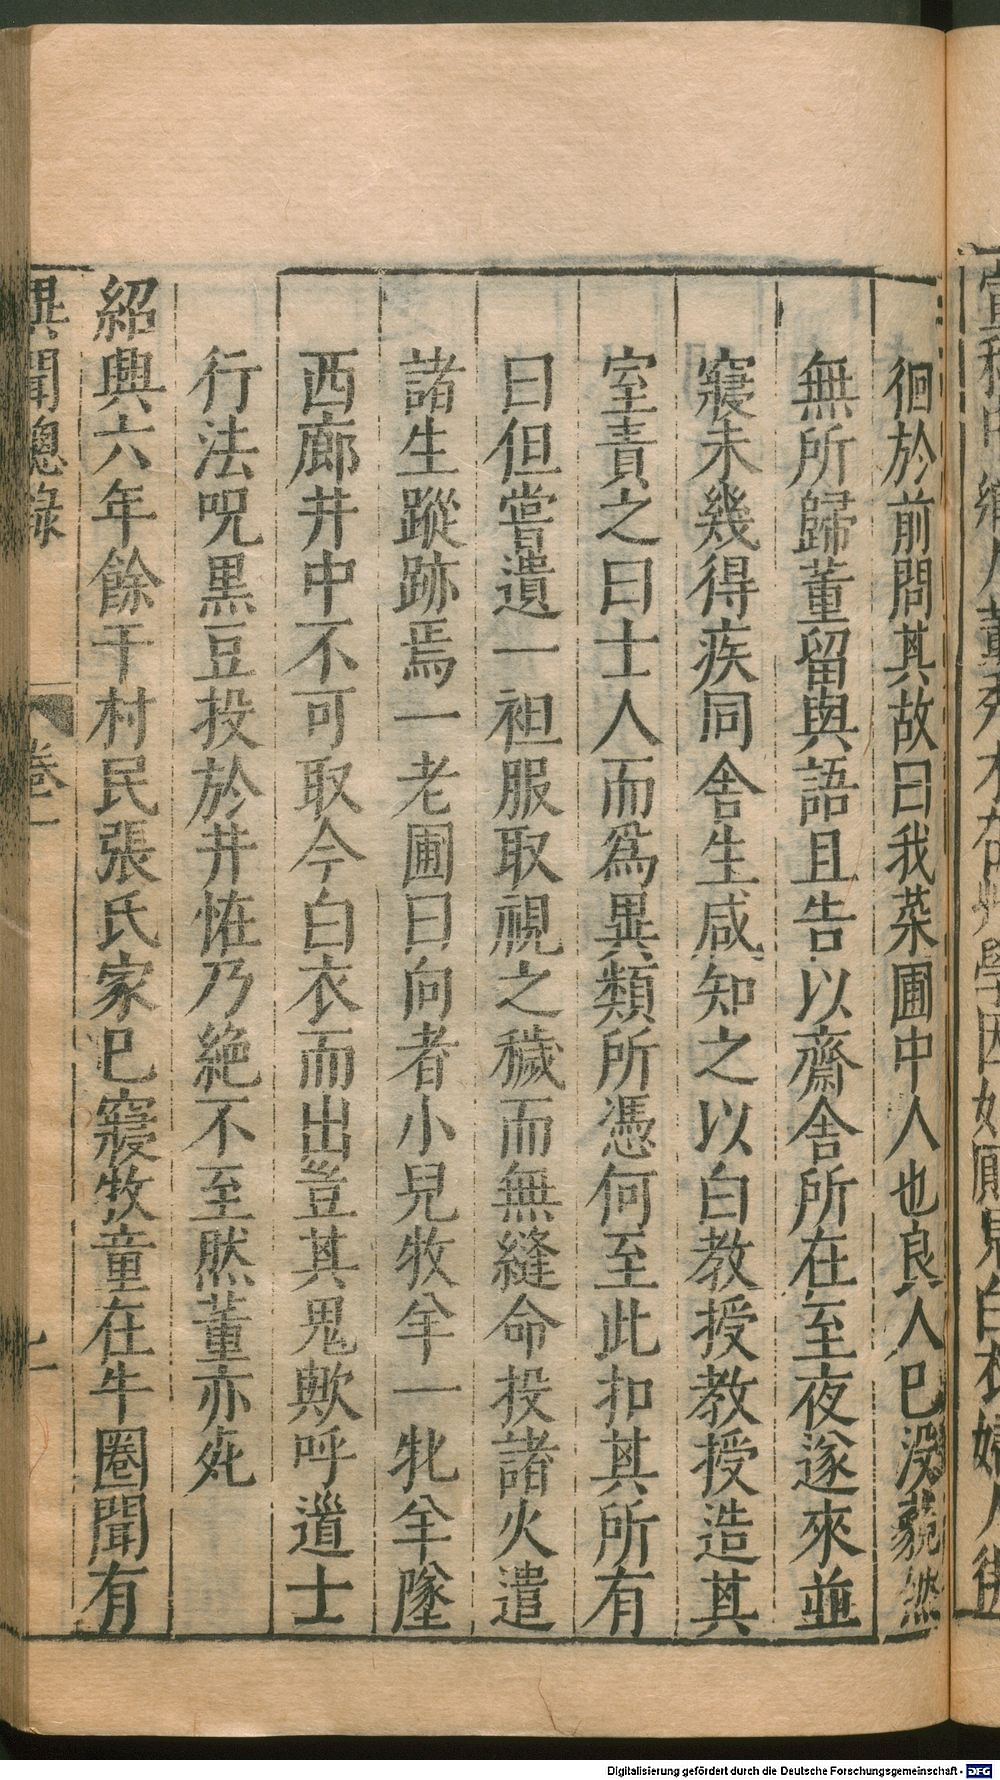 徊於前問其故曰我菜圃中人也良人已沒藐然
無所歸董留與語且告以齋舍所在至夜遂來並
寢未幾得疾同舍生咸知之以白教授教授造其
室責之曰士人而爲異類所憑何至此扣其所有
曰但嘗遺一袒服取視之穢而無縫命投諸火遣
諸生蹤跡焉一老圃曰向者小兒牧羊一牝羊墜
西廊井中不可取今白衣而出豈其鬼歟呼道士
行法呪黑豆投於井恠乃絶不至然董亦死
紹興六年餘干村民張氏家已寢牧童在牛圈聞有
異聞總錄 卷一
Digitalisierung gefördert durch die Deutsche Forschungsgemeinschaft - DFG